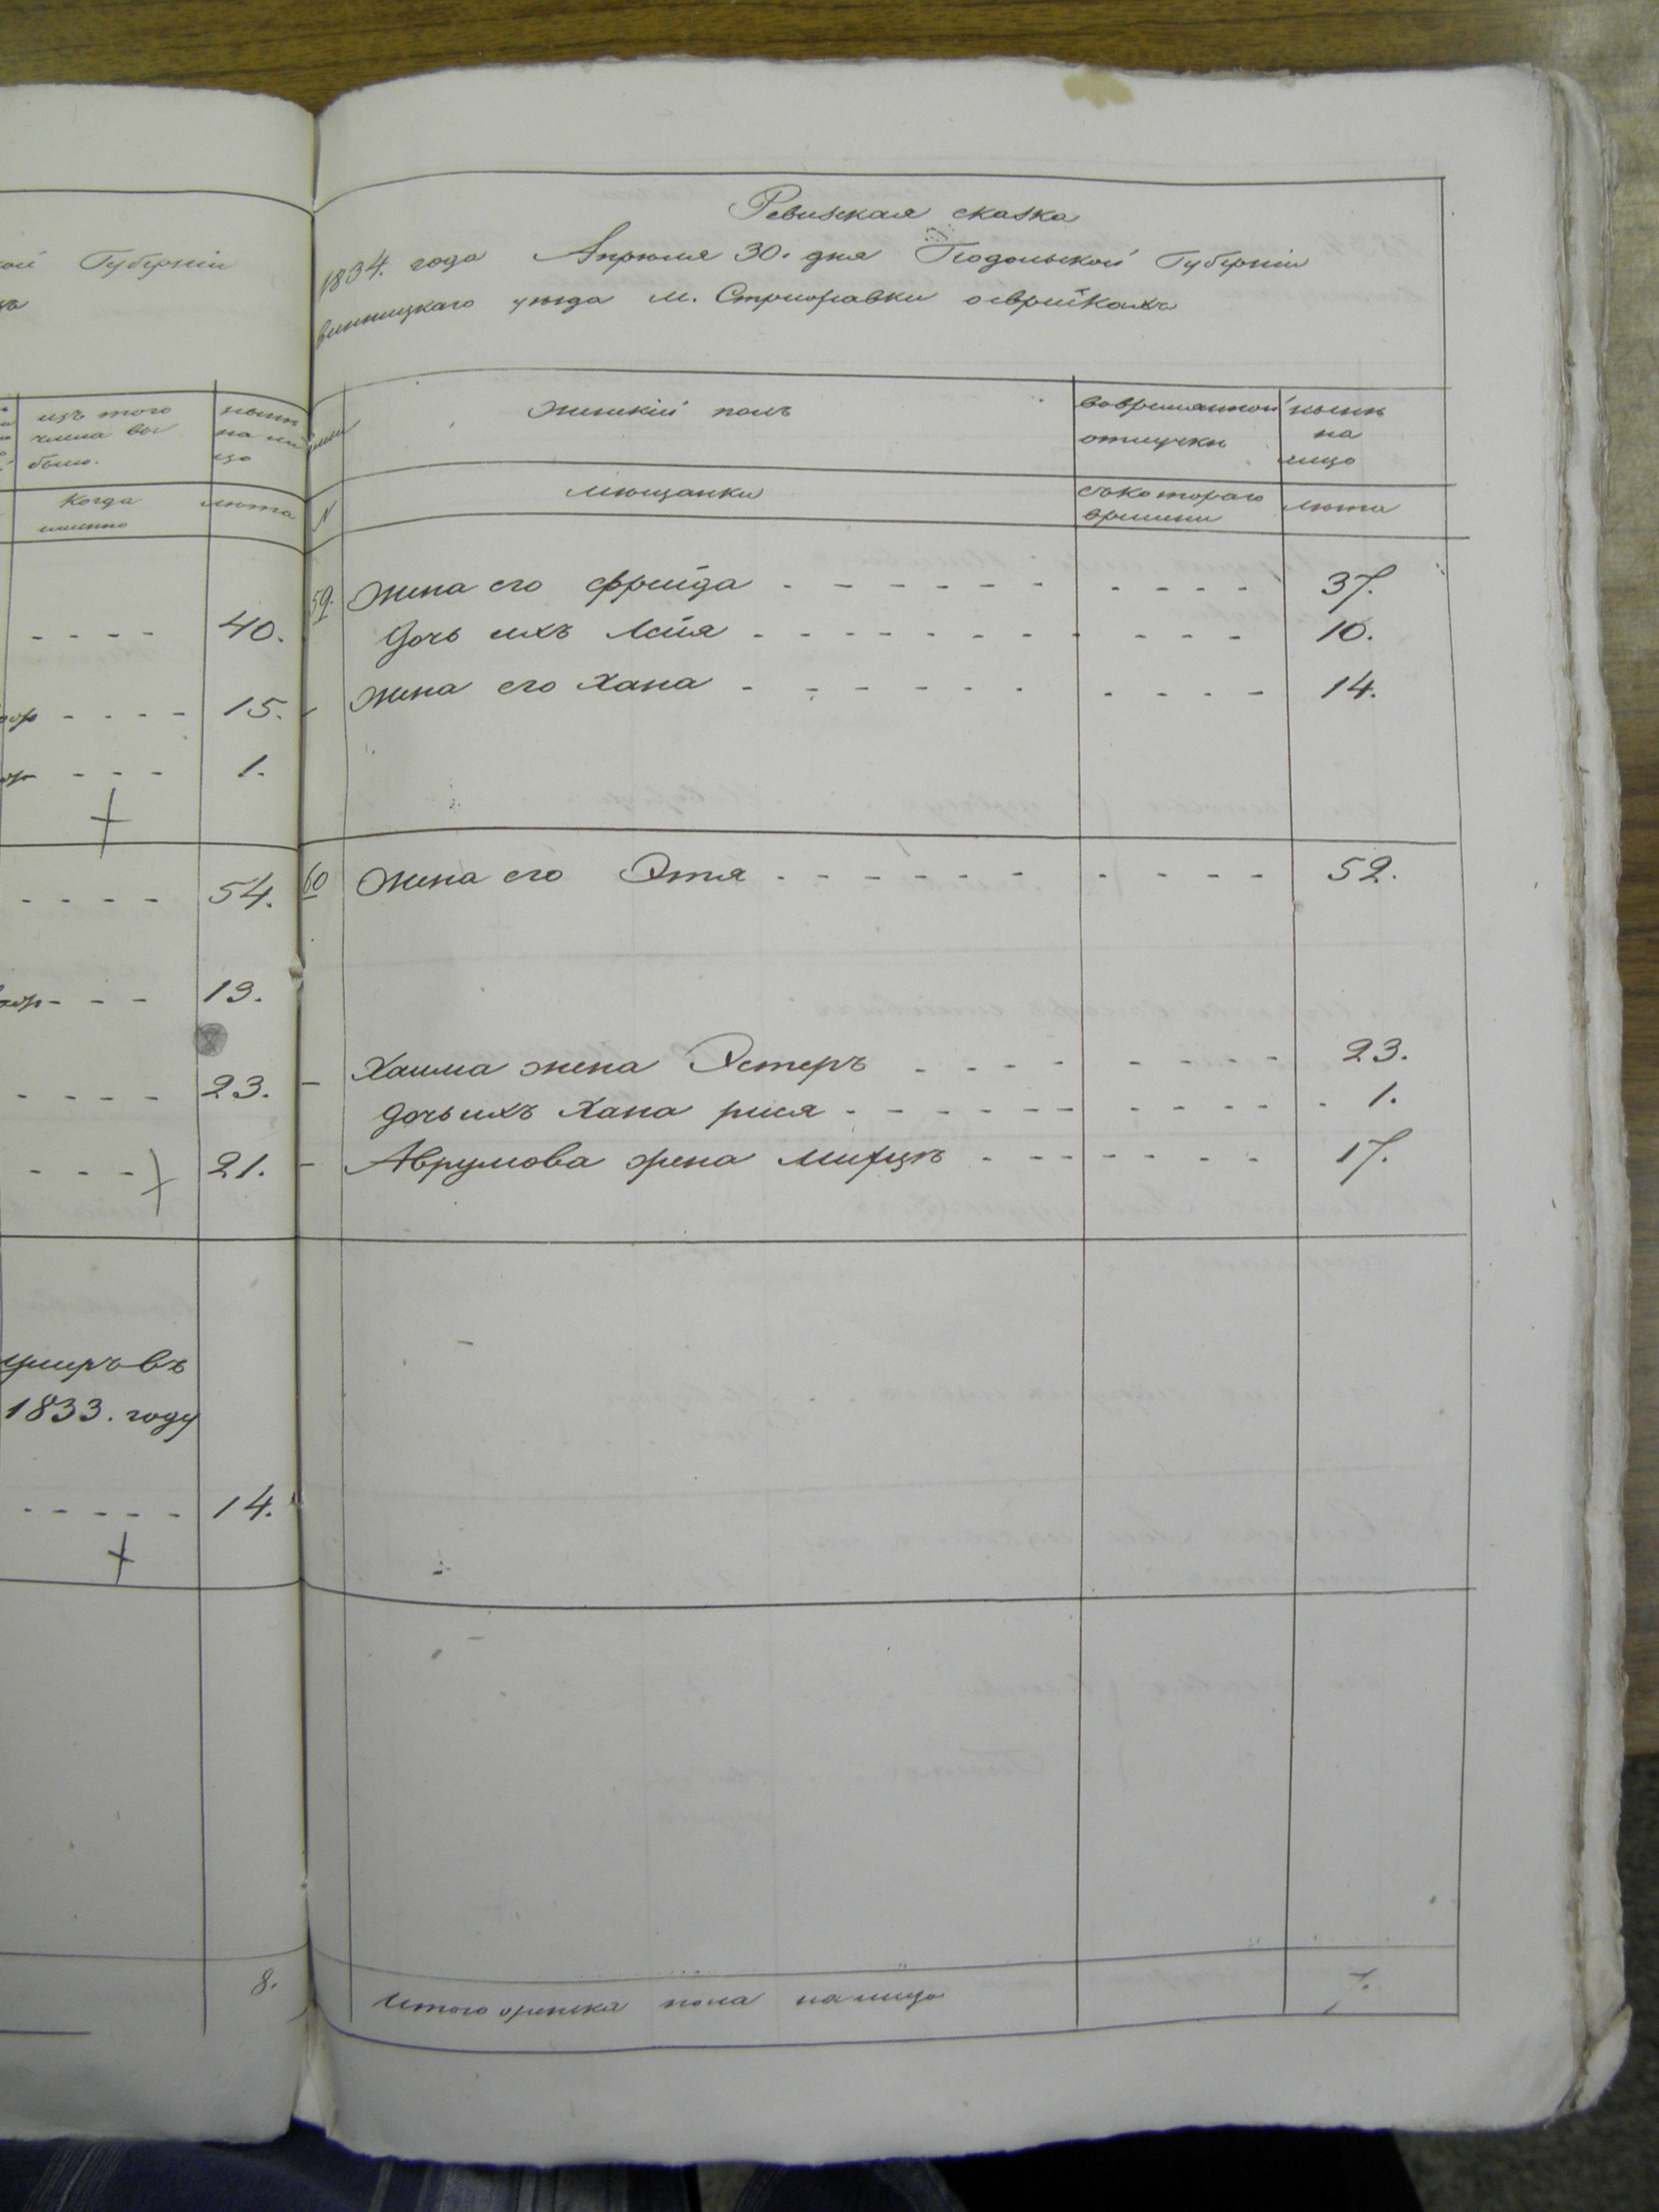 ой Губернiи
изъ того
числа вы
было.
нынѣ
на ли
цо
Когда
именно
лѣта
40.
15.
1.
54.
19.
23.
21.
умиръ въ
1833. году
14.
8.
Ревизская сказка
1834. года Апрѣля 30. дня Подольской Губернiи
винницкаго уѣзда м. Стрижавки о еврейкахъ
женскiй полъ
вовременной
отлучки
нынѣ
на
лицо
N
мѣщанки
съ котораго
времени
лѣта
59. жена его Фрейда 37.
дочь ихъ Лейя 10.
жена его Хана 14.
60 жена его Этя 52.
Хаима жена Эстеръ 23.
дочь ихъ Хана рися 1.
Аврумова жена Мирцѣ 17.
Итого женска пола на лицо 7.